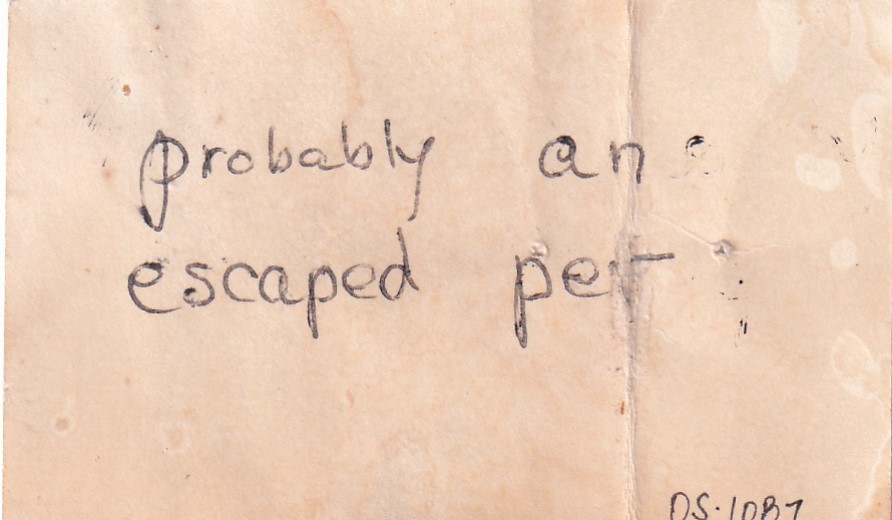 probably an
escaped pet
DS.10B7